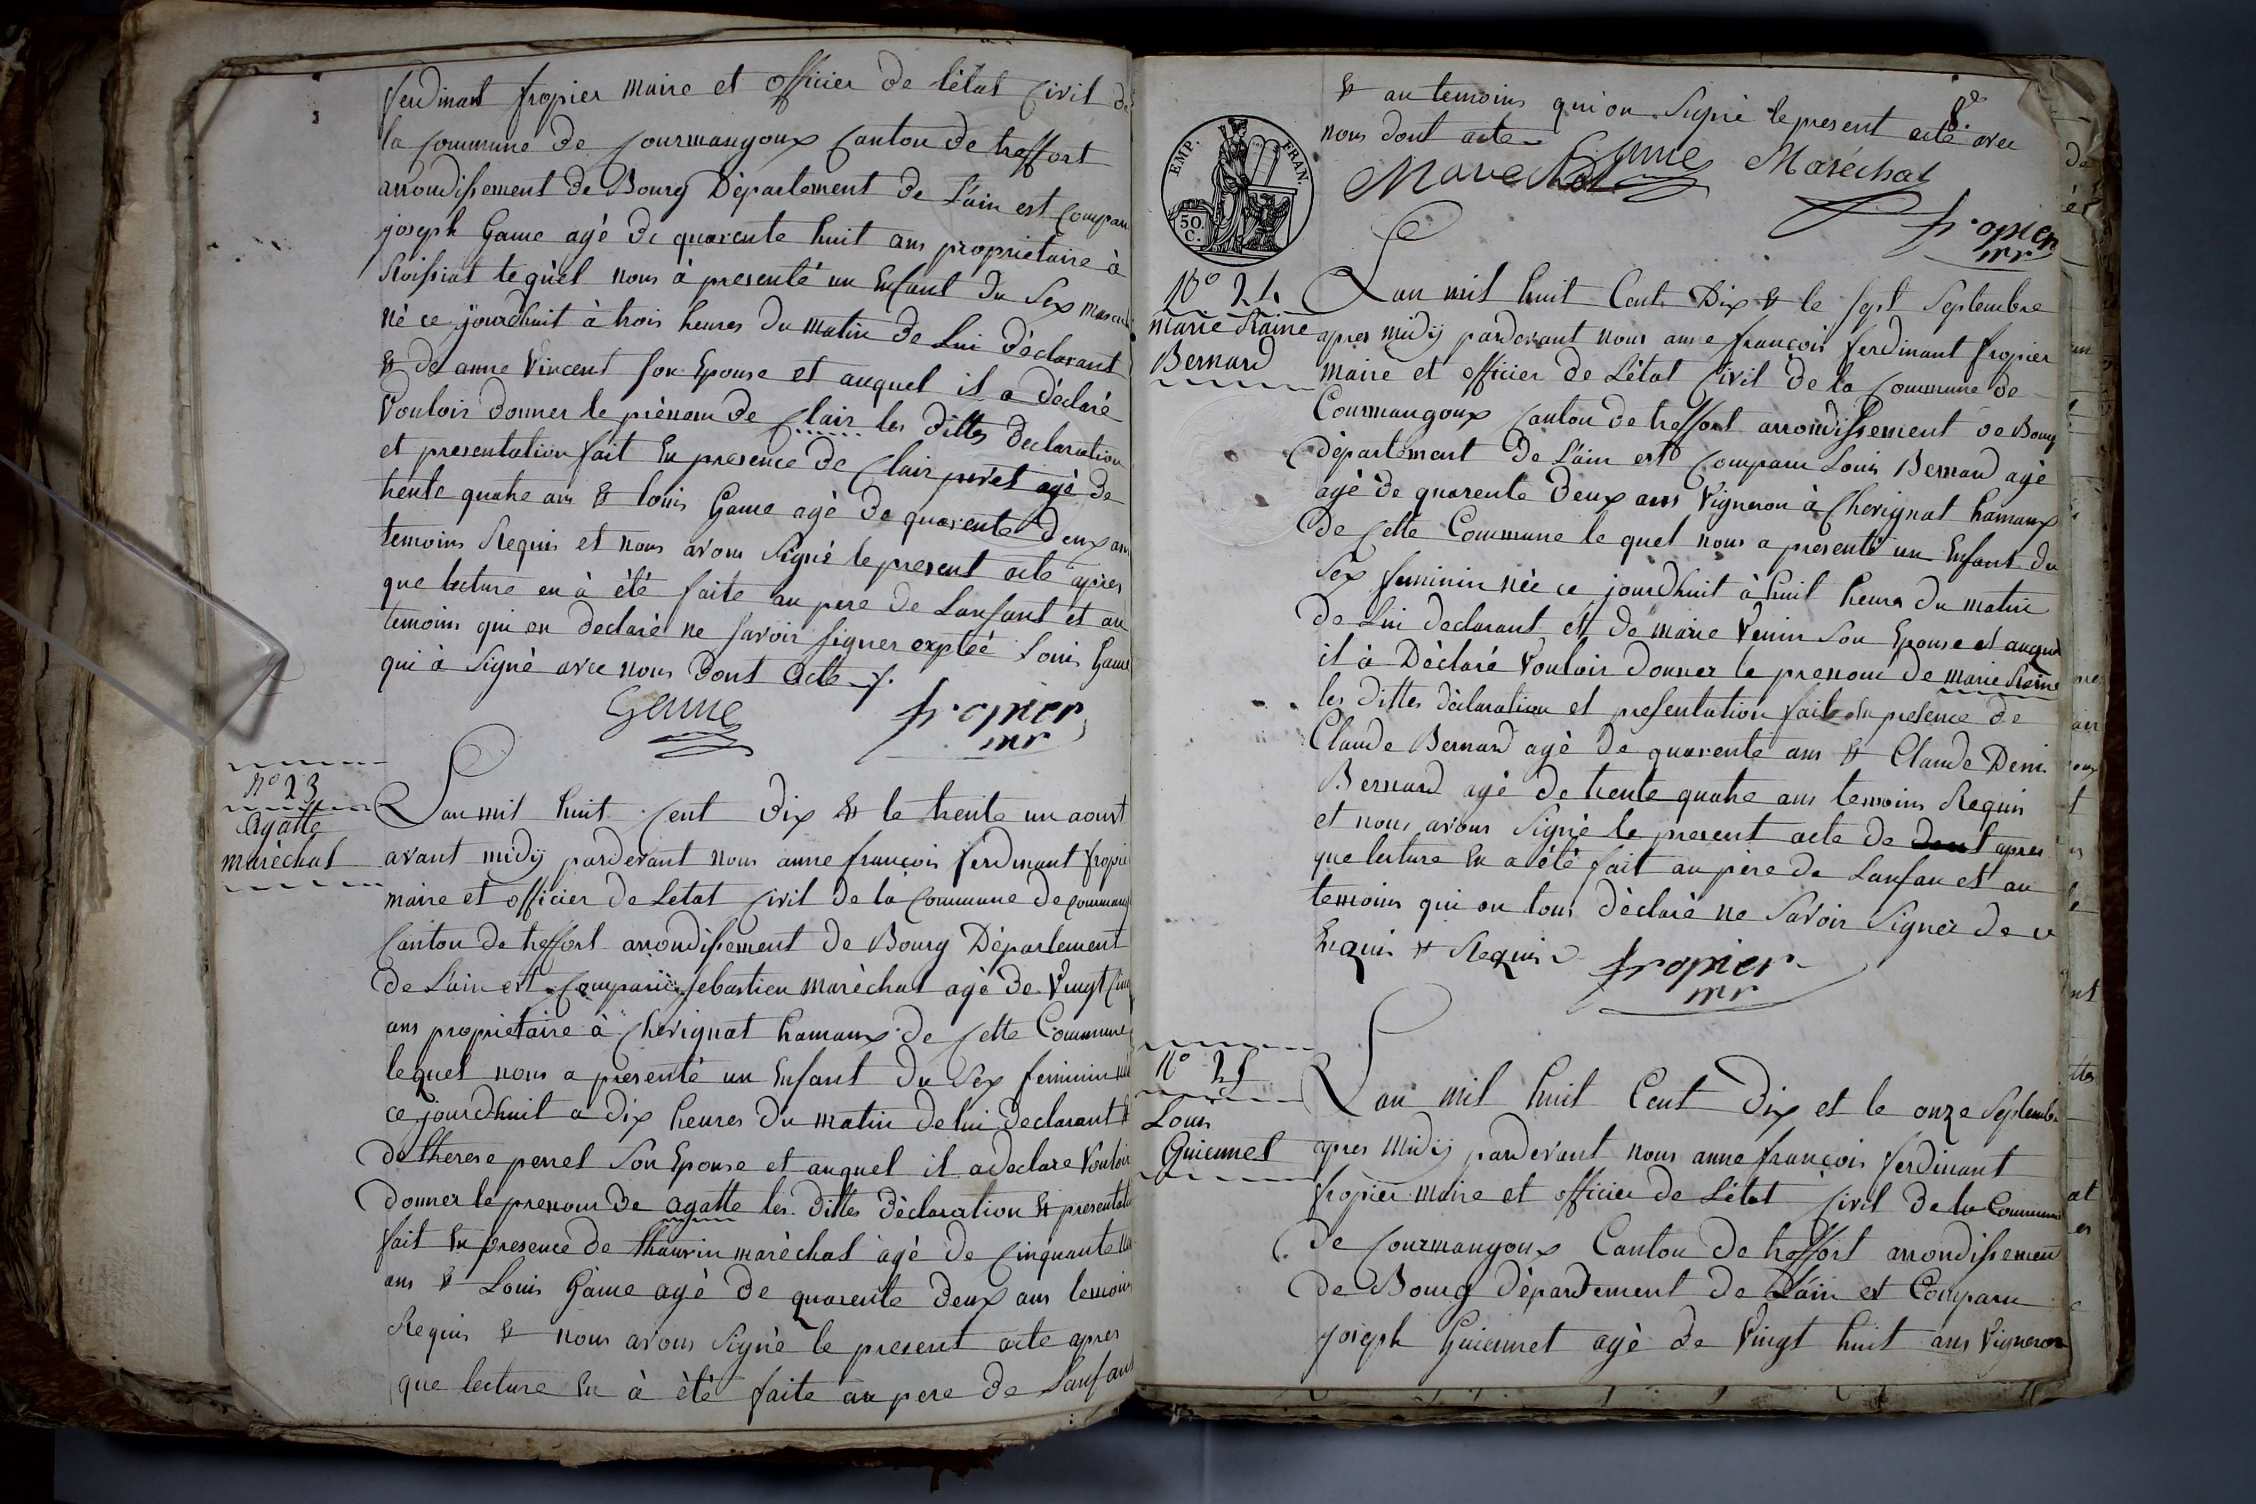 ferdinant fropier maire et officier de létat Civil de
la Commune de Courmangoux Canton de treffort
arrondissement de Bourg Département de L'ain est Comparu
joseph Game agé de quarente huit ans proprietaire à
Roissiat lequel nous à presenté un Enfant du Sex mascul
né ce jourdhuit à trois heures du matin de Lui déclarant
& de anne Vincent son Epouse et auquel il a déclaré
Vouloir donner le prénom de Clair les dittes declaration
et presentation fait En presence de Clair agé de
trente quatre ans & louis Game agé de quarente deux ans
temoins Requis et nous avons Signé le present acte apres
que lecture en à été faite au pere de Lanfant et au
temoins qui on declaré ne savoir signer exptéé Louis Game
qui à Signé avec nous dont acte
Game fropier
mr
N° 23
Agatte
maréchal
Lan mil huit cent dix & le trente un aoust
avant midy pardevant nous anne françois ferdinant fropier
maire et officier de Letat Civil de la Commune de courmang
Canton de treffort arrondissement de Bourg Département
de L'ain est Comparü sebastien maréchal agé de Vingt Cinq
ans proprietaire à Chevignat hamaux de Cette Commune
lequel nous a presenté un Enfant du Sex feminin née
ce jourdhuit a dix heures du matin de lui declarant &
de therese perret Son Epouse et auquel il a declare Vouloir
donner le prenom de agatte les dittes déclaration & presentation
fait En presence de thaurin maréchal agé de Cinquante
ans & Louis Game agé de quarente deux ans temoins
Requis & nous avons Signé le present acte apres
que lecture En à été faite au pere de Lanfant
8e.
& au temoins qui on Signé le present acte avec
nous dont acte
EMP. FRAN.
50. C.
Marechal Game Maréchal
fropier
mr
N° 24
marie Raine
Bernard
Lan mil huit Cent Dix & le sept Septembre
apres midy pardevant nous anne françois ferdinant fropier
maire et officier de Létat Civil de la Commune de
Courmangoux Canton de treffort arrondissement de Bourg
département de L'ain est Comparu Louis Bernard agé
agé de quarente deux ans Vigneron à Chevignat hamaux
de Cette Commune le quel nous a presenté un Enfant du
Sex feminin née ce jourdhuit à huit heures du matin
de Lui declarant et de marie Son Epouse et auquel
il à Déclaré Vouloir donner le prenom de marie Reine
les dittes déclaration et presentation fait en presence de
Claude Bernard agé de quarente ans & Claude Deni
Bernard agé de trente quatre ans temoins Requis
et nous avons Signé le present acte de dont apres
que lecture En a été fait au père de Lanfan et au
temoins qui on tous déclaré ne Savoir Signer de ce
Enquis & Requis
fropier
mr
N° 25
Louis
Guiennet
Lan mil huit Cent Dix et le onze Septembre
apres midy pardevant nous anne françois ferdinant
fropier maire et officier de Létat Civil de la Commune
de Courmangoux Canton de treffort arrondissement
de Bourg département de L'ain et Comparu
joseph Guiennet agé de Vingt huit ans Vigneron